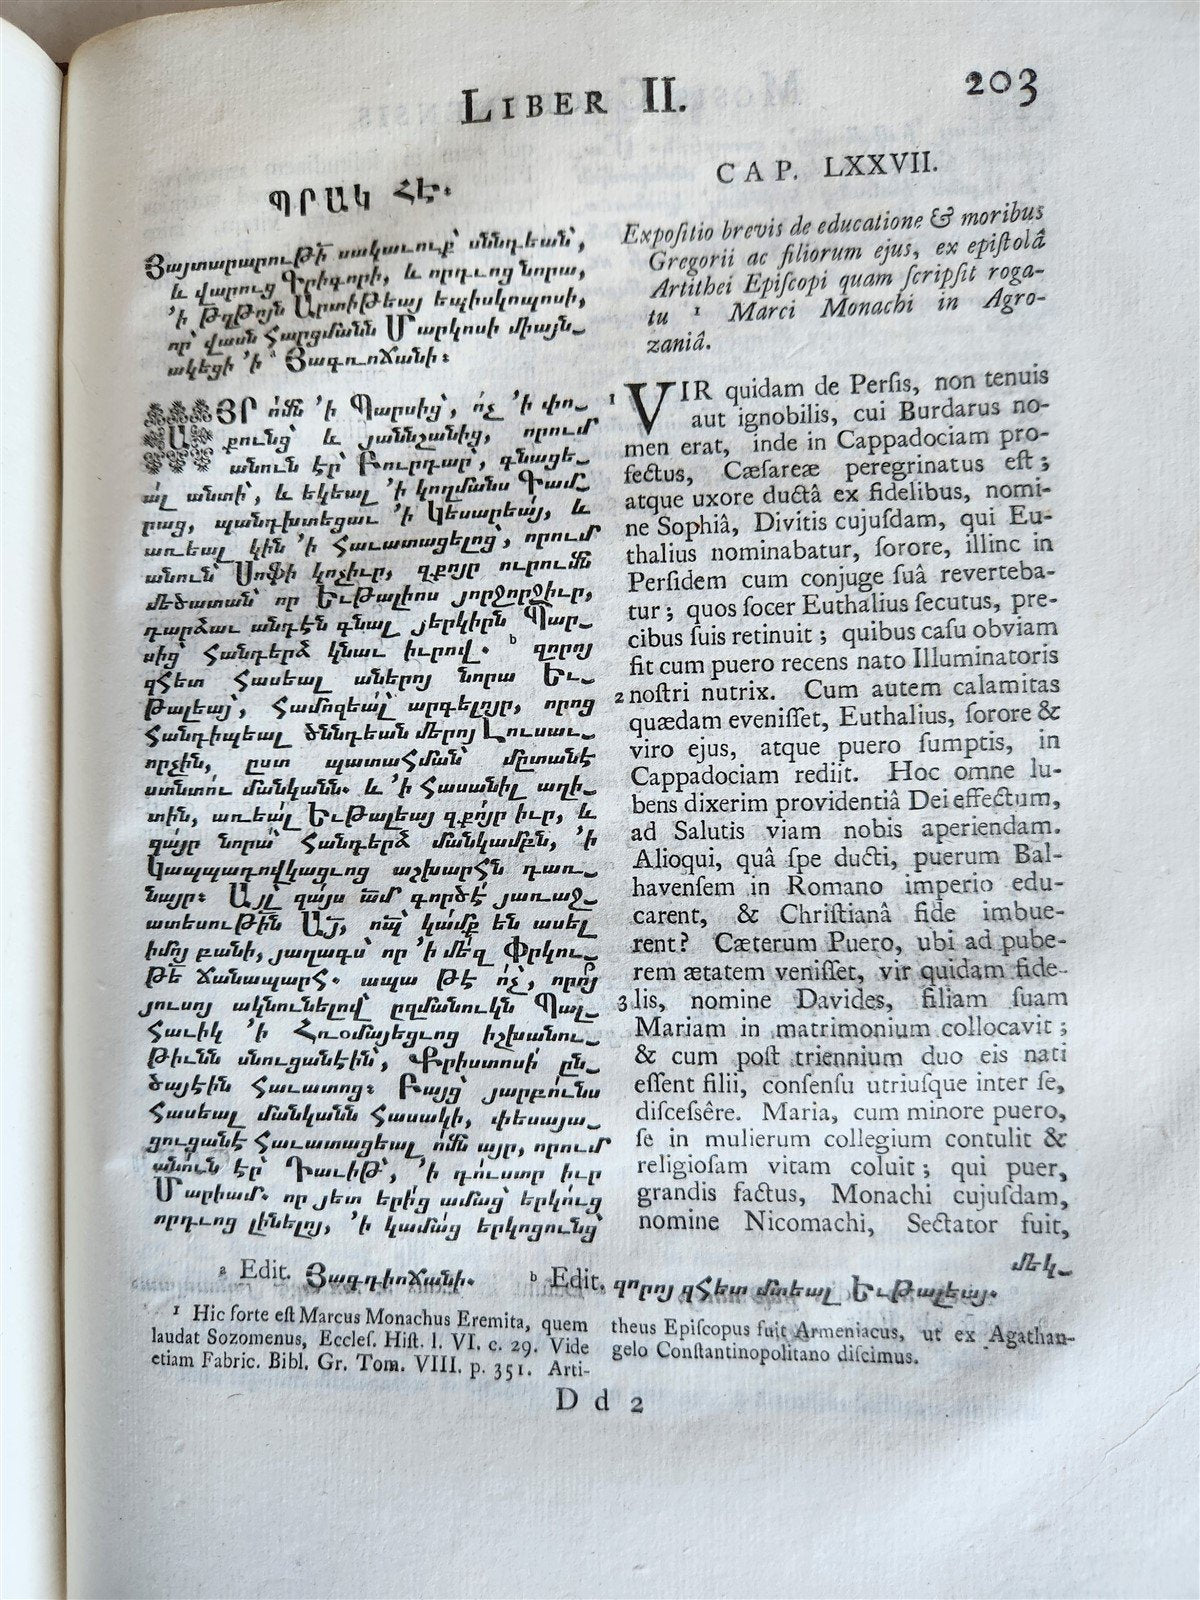 LIBER II.
203
ՊՐԱԿ ՀԷ.
Յայտարարութի սակաւուք սննդեան,
և վարուց Գրիգորի, և որդւոց նորա,
'ի թղթոյն Արտիթեայ եպիսկոպոսի,
որ վասն հարցմանն Մարկոսի միայն-
ակեցի 'ի ᵃ Յագռոճանի:
ԱՅՐ ոմն 'ի Պարսից, ոչ 'ի փո-
քունց և յաննշանից, որում
անուն էր Բուրդար, գնացե-
ալ անտի, և եկեալ 'ի կողմանս Գամ-
րաց, պանդխտեցաւ 'ի Կեսարեայ, և
առեալ կին 'ի հաւատացելոց, որում
անուն Սոփի կոչիւր, զքոյր ուրումն
մեծատան որ Եւթալիոս յորջորջիւր,
դարձաւ անդէն գնալ յերկիրն Պար-
սից հանդերձ կնաւ իւրով. ᵇ զորոյ
զհետ հասեալ աներոյ նորա Եւ-
թալեայ, համոզեալ արգելոյր, որոց
հանդիպեալ ծննդեան մերոյ Լուսաւ-
որչին, ըստ պատահման մըտանէ
ստնտու մանկանն. և 'ի հասանիլ աղի-
տին, առեալ Եւթալեայ զքոյր իւր, և
զայր նորա հանդերձ մանկամբն, 'ի
Կապպադովկացւոց աշխարհն դառ-
նայր: Այլ զայս ամ գործէ յառաջ-
ատեսութին Այ, որպ կամք են ասել
իմոյ բանի, յաղագս որ 'ի մեզ Փրկու-
թե ճանապարհ. ապա թէ ոչ, որով
յուսոյ ակնունելով ըզմանուկն Պալ-
հաւիկ 'ի Հռօմայեցւոց իշխանու-
թիւնն սնուցանէին, Քրիստոսի ըն-
ծայէին հաւատոց: Բայց յարբունս
հասեալ մանկանն հասակի, փեսայա-
ցուցանէ հաւատացեալ ոմն այր, որում
անուն էր Դաւիթ, 'ի դուստր իւր
Մարիամ. որ յետ երից ամաց երկուց
որդւոց լինելոյ, 'ի կամաց երկոցունց
CAP. LXXVII.
Expoſitio brevis de educatione & moribus
Gregorii ac filiorum ejus, ex epiſtolâ
Artithei Epiſcopi quam ſcripſit roga-
tu ¹ Marci Monachi in Agro-
zaniâ.
1 VIR quidam de Perſis, non tenuis
aut ignobilis, cui Burdarus no-
men erat, inde in Cappadociam pro-
fectus, Cæſareæ peregrinatus eſt;
atque uxore ductâ ex fidelibus, nomi-
ne Sophiâ, Divitis cujuſdam, qui Eu-
thalius nominabatur, ſorore, illinc in
Perſidem cum conjuge ſuâ reverteba-
tur; quos ſocer Euthalius ſecutus, pre-
cibus ſuis retinuit; quibus caſu obviam
fit cum puero recens nato Illuminatoris
2 noſtri nutrix. Cum autem calamitas
quædam eveniſſet, Euthalius, ſorore &
viro ejus, atque puero ſumptis, in
Cappadociam rediit. Hoc omne lu-
bens dixerim providentiâ Dei effectum,
ad Salutis viam nobis aperiendam.
Alioqui, quâ ſpe ducti, puerum Bal-
havenſem in Romano imperio edu-
carent, & Chriſtianâ fide imbue-
rent? Cæterum Puero, ubi ad pube-
rem ætatem veniſſet, vir quidam fide-
3 lis, nomine Davides, filiam ſuam
Mariam in matrimonium collocavit;
& cum poſt triennium duo eis nati
eſſent filii, conſenſu utriuſque inter ſe,
diſceſsêre. Maria, cum minore puero,
ſe in mulierum collegium contulit &
religioſam vitam coluit; qui puer,
grandis factus, Monachi cujuſdam,
nomine Nicomachi, Sectator fuit,
մեկ-
ᵃ Edit. Յագդիոճանի. ᵇ Edit. զորոյ զհետ մտեալ Եւթալեայ.
1 Hic forte eſt Marcus Monachus Eremita, quem
laudat Sozomenus, Eccleſ. Hiſt. l. VI. c. 29. Vide
etiam Fabric. Bibl. Gr. Tom. VIII. p. 351. Arti-
theus Epiſcopus fuit Armeniacus, ut ex Agathan-
gelo Conſtantinopolitano diſcimus.
D d 2